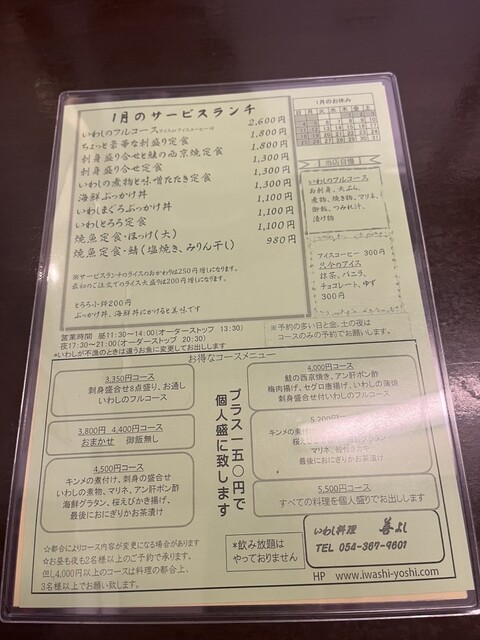 1月のサービスランチ
いわしのフルコース 2,600円
ちょっと豪華な刺盛り定食 1,800円
刺身盛り合せと鮭の西京焼定食 1,800円
刺身盛り合せ定食 1,300円
いわしの煮物と味噌たたき定食 1,300円
海鮮ぶっかけ丼 1,100円
いわしまぐろぶっかけ丼 1,100円
いわしとろろ定食 1,100円
焼魚定食・ほっけ(大) 1,100円
焼魚定食・鯖(塩焼き、みりん干し) 980円
※サービスランチのライスのおかわりは250円増しになります。
最初のご注文でのライス大盛りは200円増しになります。
とろろ小鉢200円
ぶっかけ丼、海鮮丼にかけると美味です
営業時間 昼11:30~14:00(オーダーストップ 13:30)
夜17:30~21:00(オーダーストップ 20:30)
*いわしが不漁のときは違うお魚に変更してお出しします
1月のお休み
日 月 火 水 木 金 土
当店自慢
いわしのフルコース
お刺身、天ぷら、
煮物、焼き物、マリネ、
御飯、つみれ汁、
漬け物
アイスコーヒー 300円
只今のアイス
抹茶、バニラ、
チョコレート、ゆず
300円
※予約の多い日と金、土の夜は
コースのみの予約でお願いします
お得なコースメニュー
3,350円コース
刺身盛合せ8点盛り、お通し
いわしのフルコース
3,800円 4,400円コース
おまかせ 御飯無し
4,500円コース
キンメの煮付け、刺身の盛合せ
いわしの煮物、マリネ、アン肝ポン酢
海鮮グラタン、桜えびかき揚げ、
最後におにぎりかお茶漬け
プラス一五〇円で
個人盛に致します
4,000円コース
鮭の西京焼き、アン肝ポン酢
梅肉揚げ、セグロ唐揚げ、いわしの蒲焼
刺身盛合せ付いわしのフルコース
5,200円コース
キンメの煮付
マリネ
最後におにぎりかお茶漬け
5,500円コース
すべての料理を個人盛りでお出しします
☆都合によりコース内容が変更になる場合があります
☆お昼も夜も2名様以上のご予約で承ります。
但し4,000円以上のコースは料理の都合上、
3名様以上でお願い致します。
*飲み放題は
やっておりません
いわし料理 善よし
TEL 054-367-9601
HP www.iwashi-yoshi.com